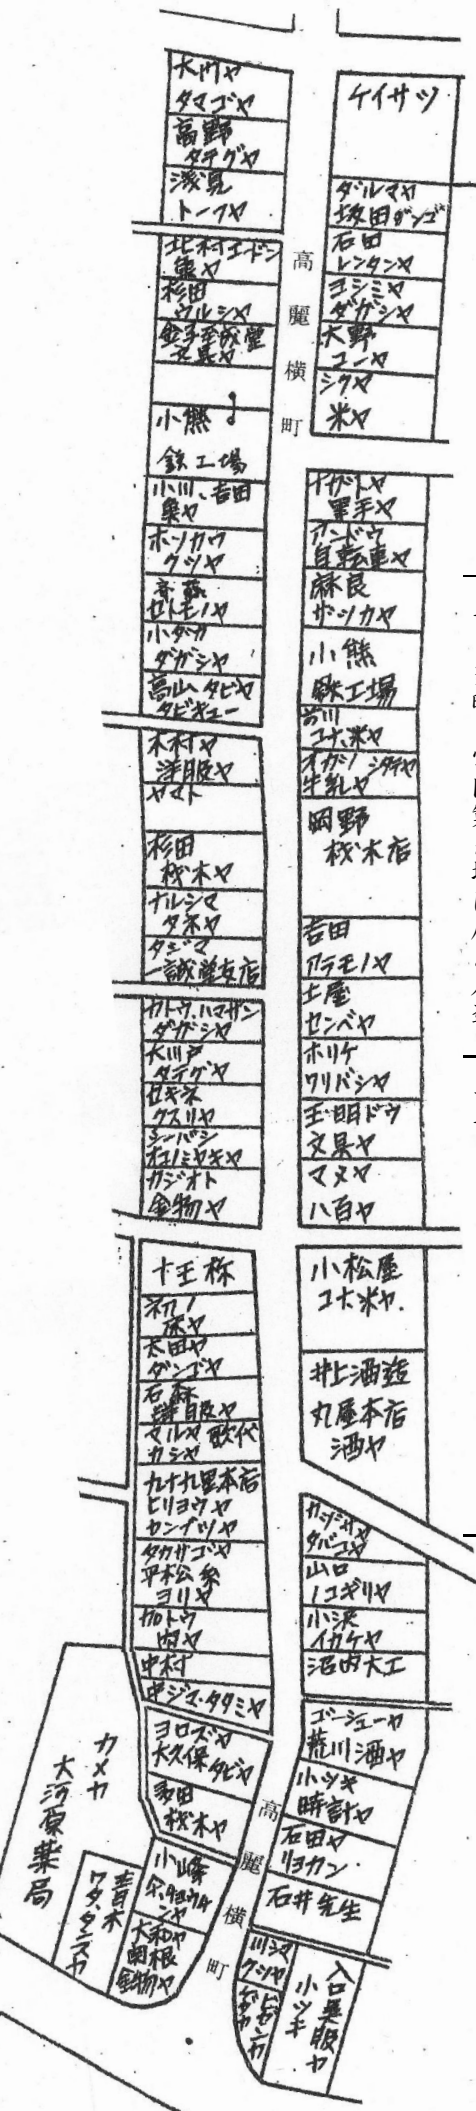 大川ヤ
タマゴヤ
高野
タテグヤ
浅見
トーフヤ
杉田
ウルシヤ
小熊
鉄工場
小川、吉田
ホソカワ
クツヤ
斉藤
セトモノヤ
小ダカ
ダガシヤ
高山、タビヤ
タビキュー
木村ヤ
洋服ヤ
ヤマト
杉田
材木ヤ
ナルシマ
タネヤ
タジマ
一誠堂支店
カトウ、ハマザン
ダガシヤ
大川戸
タテグヤ
セキネ
クスリヤ
カジオト
金物ヤ
十王称
初ノ
床ヤ
太田ヤ
ダンゴヤ
石森
洋服ヤ
マルヤ 歌代
カシヤ
九十九里本店
ヒリョウヤ
カンブツヤ
タカサゴヤ
平松糸
ヨリヤ
加トウ
肉ヤ
中村
中ジマ・タタミヤ
ヨロズヤ
大久保タビヤ
多田
材木ヤ
小峰
大和ヤ
関根
金物ヤ
青木
ワタ、タンスヤ
カメヤ
大河原薬局
高麗横町
ケイサツ
ダルマヤ
坂田ダンゴ
石田
レンタンヤ
ヨシミヤ
ダガシヤ
大野
コーヤ
シクヤ
米ヤ
ナガトヤ
軍手ヤ
アンドウ
自転車ヤ
麻良
ザッカヤ
小熊
鉄工場
前川
コナ、米ヤ
牛乳ヤ
岡野
材木店
吉田
アラモノヤ
土屋
センベヤ
ホリケ
ワリバシヤ
玉明ドウ
文具ヤ
マメヤ
八百ヤ
小松屋
コナ米ヤ.
井上酒造
丸屋本店
酒ヤ
タバコヤ
山口
ノコギリヤ
小沢
イカケヤ
沼内大工
ゴーシューヤ
荒川酒ヤ
小ツキ
時計ヤ
石田ヤ
リョカン
石井先生
川シマ
クシヤ
入口呉服ヤ
小ツキ
高麗横町